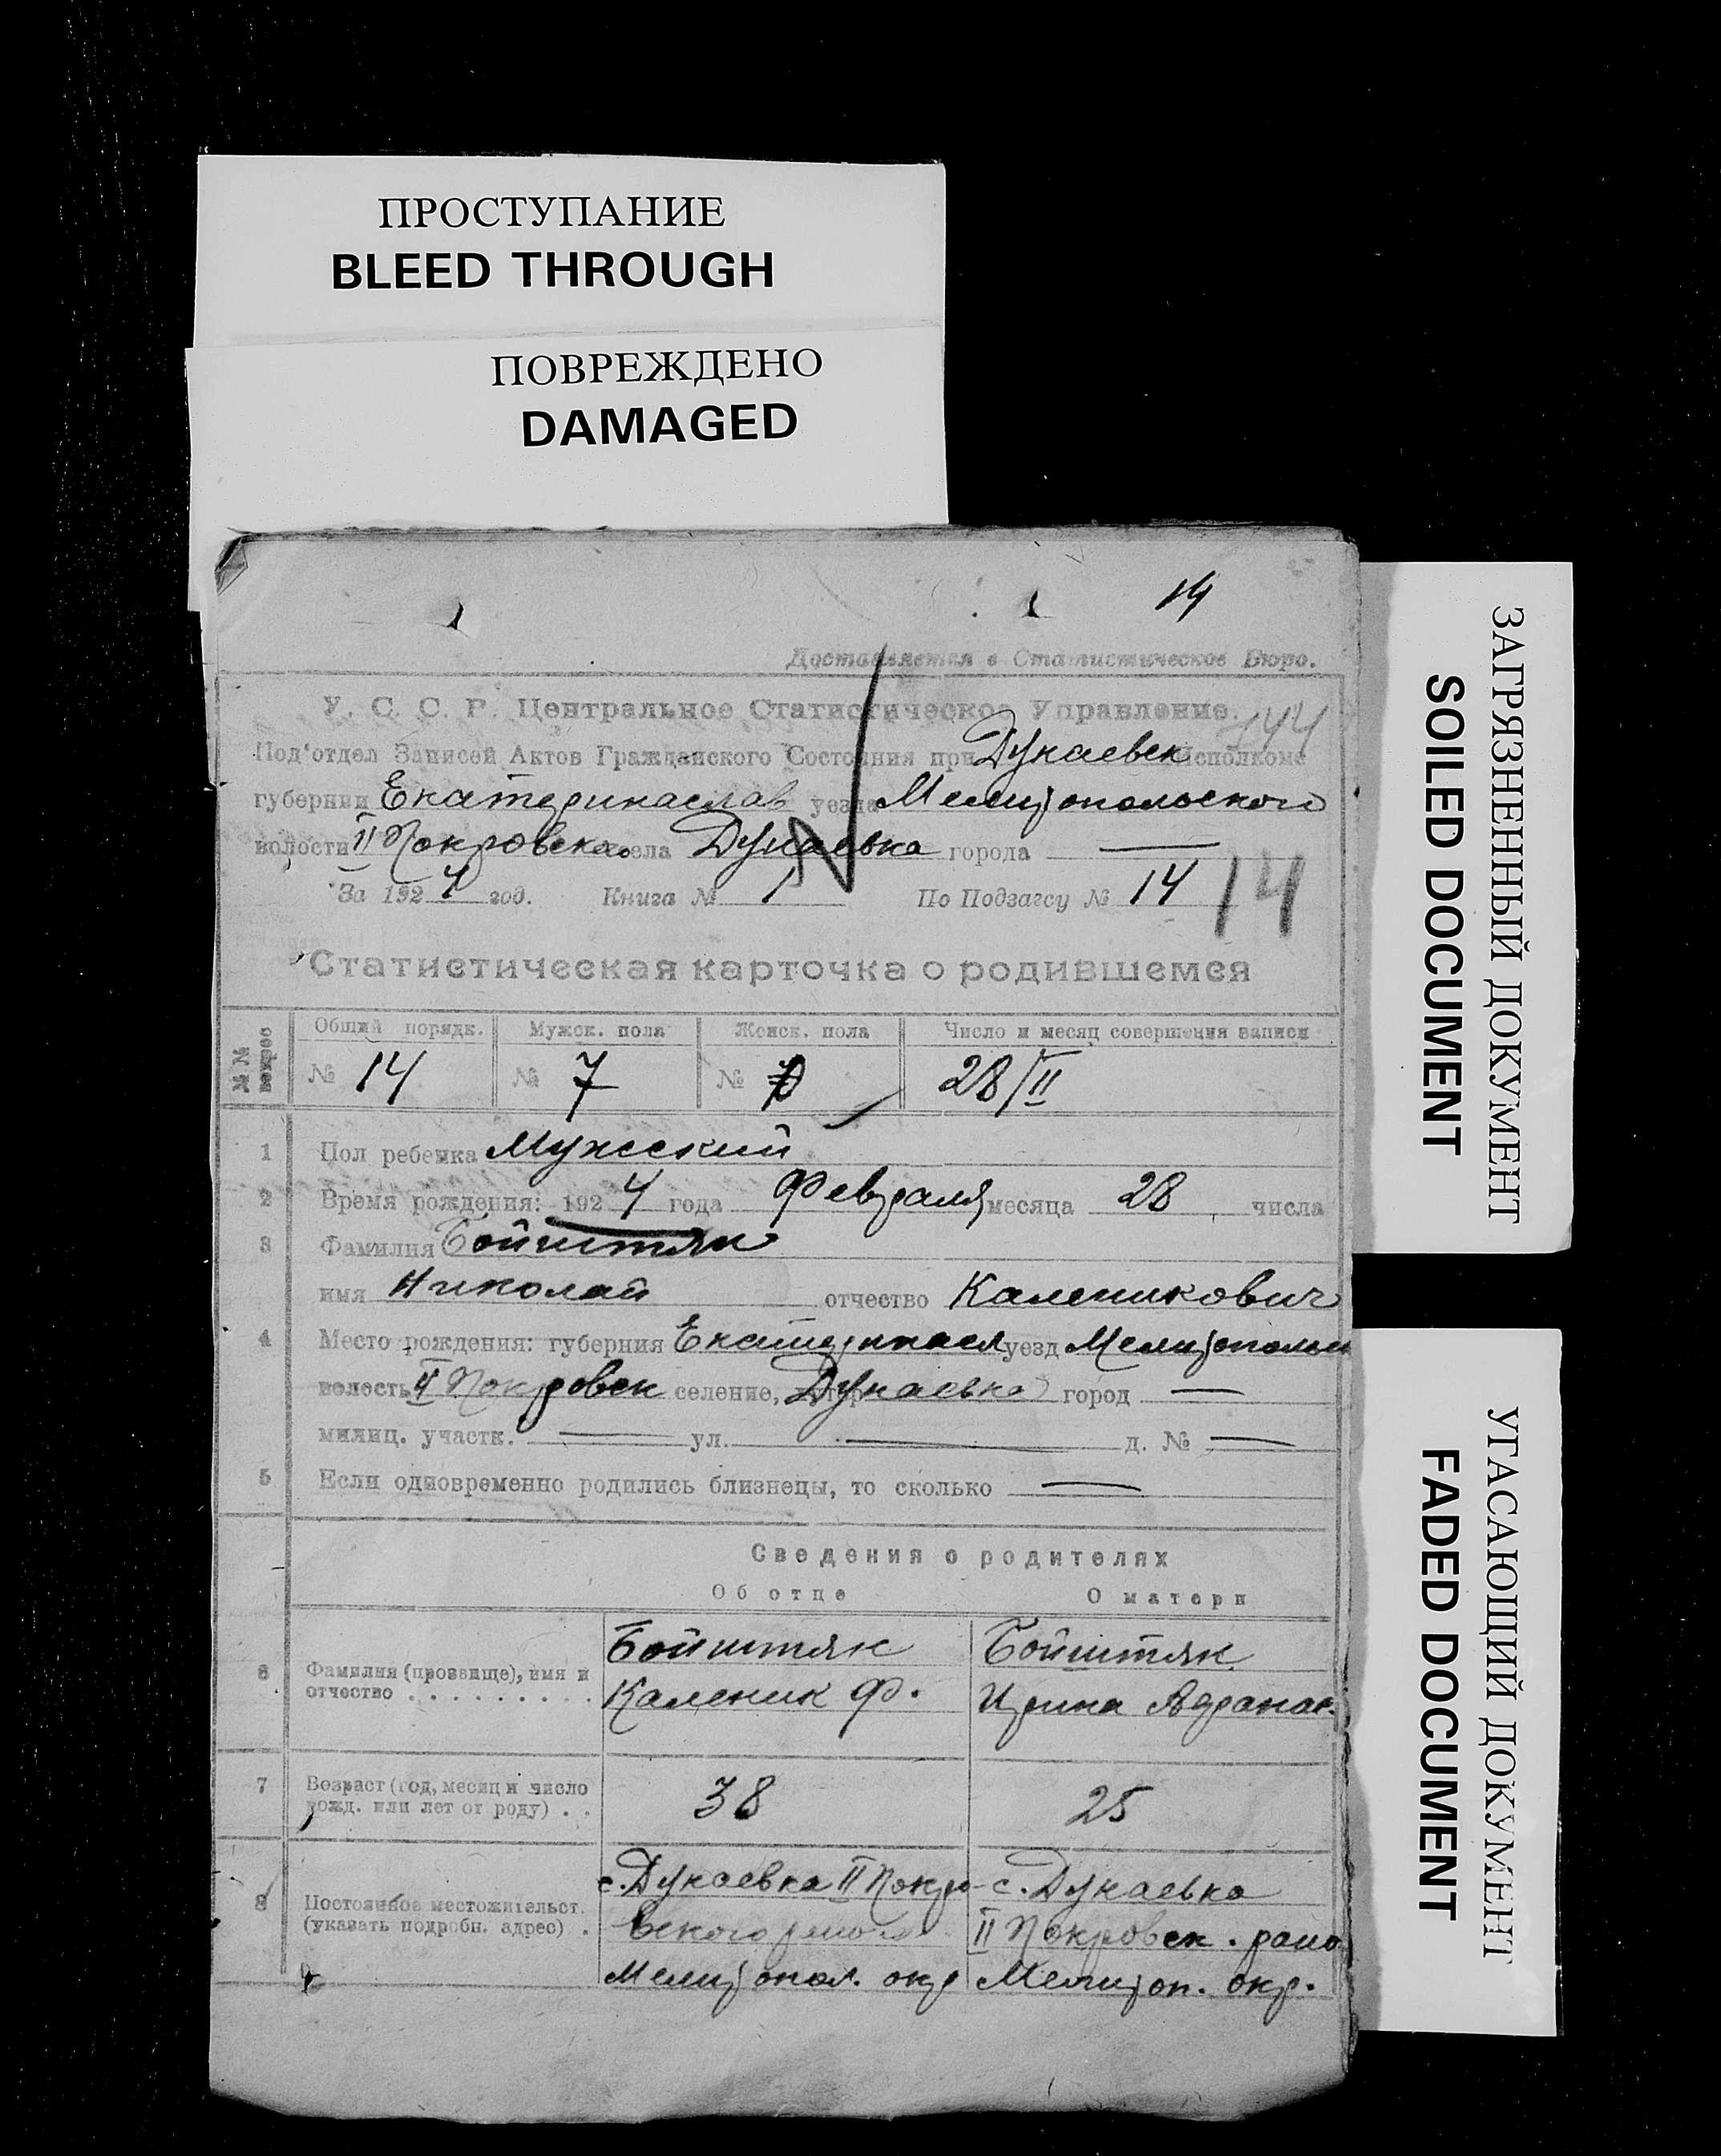 ПРОСТУПАНИЕ
BLEED THROUGH
ПОВРЕЖДЕНО
DAMAGED
14
Доставляется в Статистическое Бюро.
У. С. С. Р. Центральное Статистическое Управление.
144
Под'отдел Записей Актов Гражданского Состояния при Дунаевск Исполкоме
губернии Екатеринаслав уезда Мелитопольского
волости II Покровско села Дунаевка города —
За 1924 год. Книга № 1 По Подзагсу № 14 14
Статистическая карточка о родившемся
№№ вопрос Общий порядк. Мужск. пола Женск. пола Число и месяц совершения записи
№ 14 № 7 № 28/II
1 Пол ребенка Мужеский
2 Время рождения: 1924 года Февраля месяца 28 числа
3 Фамилия Бойштян
имя Николай отчество Каленикович
4 Место рождения: губерния Екатеринасл уезд Мелитопольск
волость II Покровск селение, хутор Дунаевка город —
милиц. участк. — ул. — д. № —
5 Если одновременно родились близнецы, то сколько —
Сведения о родителях
Об отце О матери
6 Фамилия (прозвище), имя и отчество . . . . . . . . . .
Бойштян
Каленик Ф.
Бойштян
Ирина Афанас.
7 Возраст (год, месяц и число рожд. или лет от роду) . .
38
25
8 Постоянное местожительст. (указать подробн. адрес) .
с. Дунаевка II Покро-
вского района
Мелитопол. окр
с. Дунаевка
II Покровск. райо
Мелитоп. окр.
ЗАГРЯЗНЕННЫЙ ДОКУМЕНТ
SOILED DOCUMENT
УГАСАЮЩИЙ ДОКУМЕНТ
FADED DOCUMENT